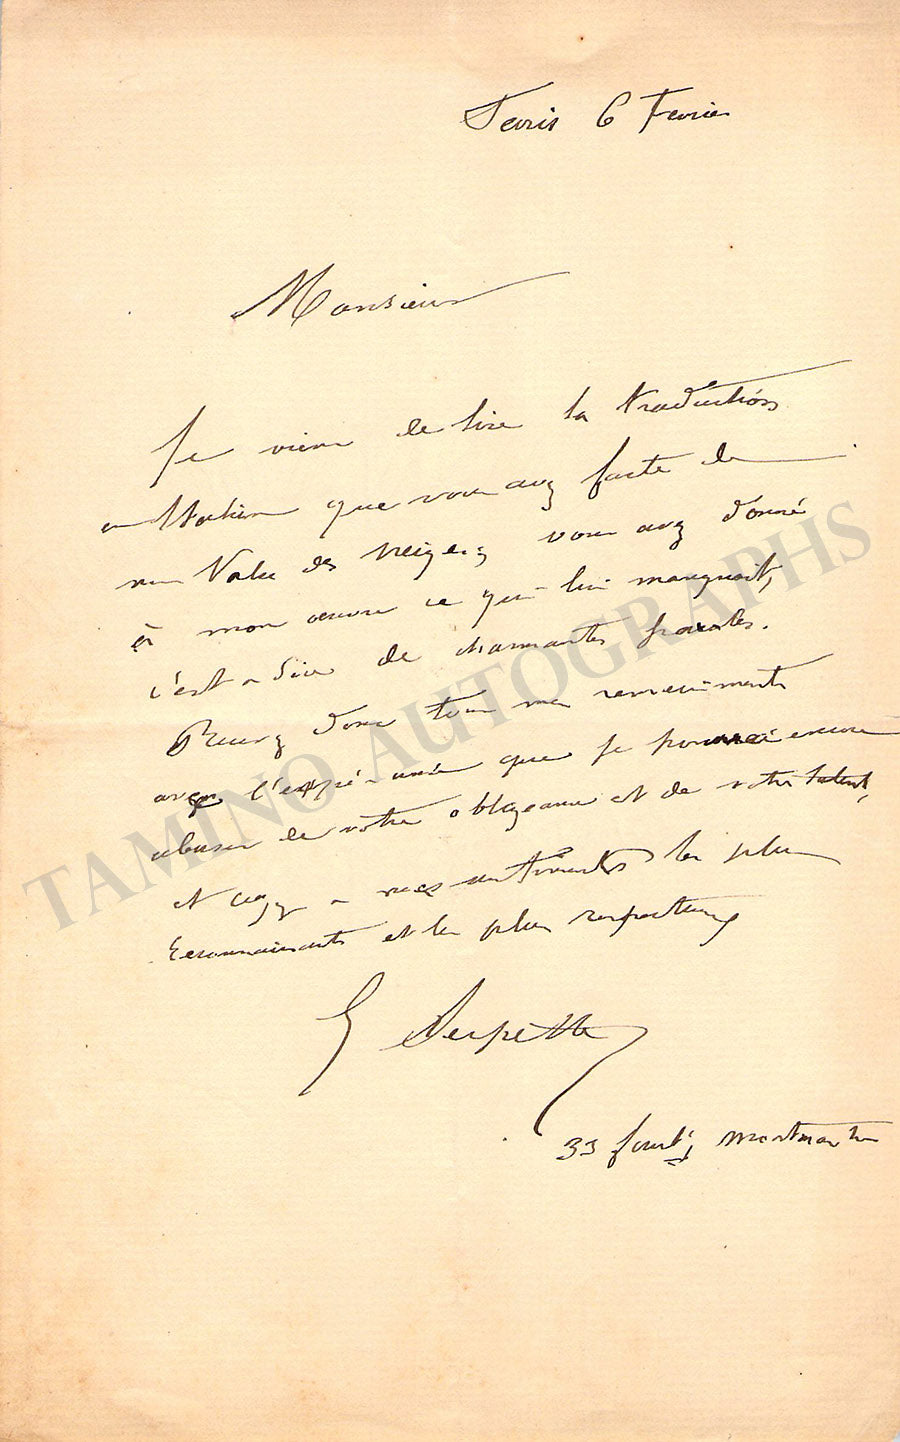 Paris 6 Fevrier
Monsieur
Je viens de lire la traduction
en Italien que vous avez faite de
ma Valse des Neiges; vous avez donné
à mon œuvre ce qui lui manquait,
c'est a dire de charmantes paroles.
Recevez donc tous mes remerciements
avec l'espérance que je pourrai encore
abuser de votre obligeance et de votre talent,
et croyez a mes sentiments les plus
reconnaissants et les plus respectueux
G Serpette
33 faub.g Montmartre
TAMINO AUTOGRAPHS